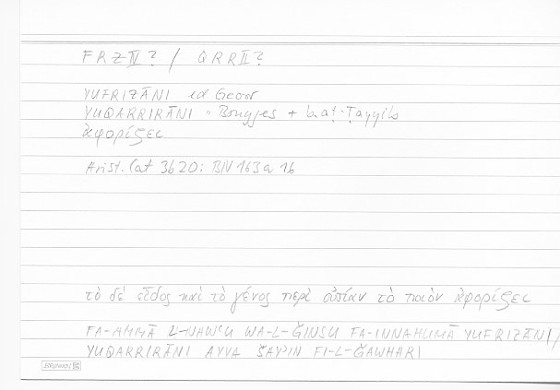 FRZ IV? / QRR II?
YUFRIZĀNI ed Georr
YUQARRIRĀNI = Bouyges + b.aṭ-Ṭayyib
ἀφορίζει
Arist. Cat 3b20: BN 163a 16
τὸ δὲ εἶδος καὶ τὸ γένος περὶ οὐσίαν τὸ ποιὸν ἀφορίζει
FA-AMMĀ L-NAWʿU WA-L-ǦINSU FA-INNAHUMĀ YUFRIZĀNI /
YUQARRIRĀNI AYYA ŠAYʾIN FI-L-ǦAWHARI
BRUNNEN